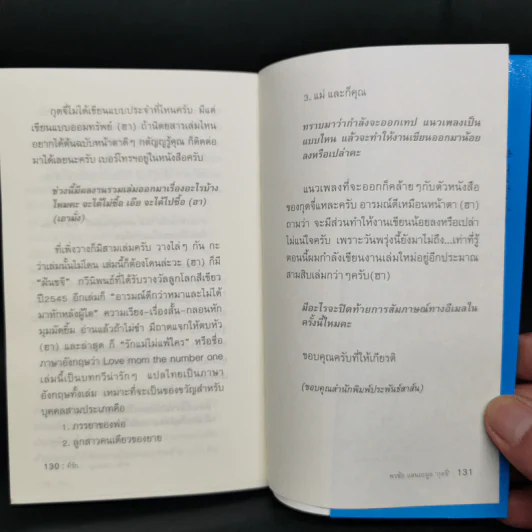 กุดจี่ไม่ได้เขียนแบบประจำที่ไหนครับ มีแต่
เขียนแบบออมทรัพย์ (ฮา) ถ้านิตยสารเล่มไหน
อยากได้ต้นฉบับหน้าตาดีๆ กตัญญูรู้คุณ ก็ติดต่อ
มาได้เลยนะครับ เบอร์โทรฯอยู่ในหนังสือครับ
ช่วงนี้มีผลงานรวมเล่มออกมาเรื่องอะไรบ้าง
ไหมคะ จะได้ไปซื้อ เอ๊ย จะได้ไปซื้อ (ฮา)
(เอามั่ง)
ที่เพิ่งวางก็มีสามเล่มครับ วางไล่ๆ กัน กะ
ว่าเล่มนั้นไม่โดน เล่มนี้ก็ต้องโดนล่ะวะ (ฮา) ก็มี
"ฝันขจี" กวีนิพนธ์ที่ได้รับรางวัลลูกโลกสีเขียว
ปี2545 อีกเล่มก็ "อารมณ์ดีกว่าหมาและไม่ได้
มาทักหลังผู้ใด" ความเรียง-เรื่องสั้น-กลอนหัก
มุมมัดยิ้ม อ่านแล้วถ้าไม่ขำ มีถาดแจกให้ตบหัว
(ฮา) และล่าสุด ก็ "รักแม่ไม่แพ้ใคร" หรือชื่อ
ภาษาอังกฤษว่า Love mom the number one
เล่มนี้เป็นบทกวีน่ารักๆ แปลไทยเป็นภาษา
อังกฤษทั้งเล่ม เหมาะที่จะเป็นของขวัญสำหรับ
บุคคลสามประเภทคือ
1. ภรรยาของพ่อ
2. ลูกสาวคนเดียวของยาย
130 :
3. แม่ และก็คุณ
ทราบมาว่ากำลังจะออกเทป แนวเพลงเป็น
แบบไหน แล้วจะทำให้งานเขียนออกมาน้อย
ลงหรือเปล่าคะ
แนวเพลงที่จะออกก็คล้ายๆกับตัวหนังสือ
ของกุดจี่แหละครับ อารมณ์ดีเหมือนหน้าตา (ฮา)
ถามว่า จะมีส่วนทำให้งานเขียนน้อยลงหรือเปล่า
ไม่แน่ใจครับ เพราะวันพรุ่งนี้ยังมาไม่ถึง...เท่าที่รู้
ตอนนี้ผมกำลังเขียนงานเล่มใหม่อยู่อีกประมาณ
สามสิบเล่มกว่าๆครับ(ฮา)
มีอะไรจะปิดท้ายการสัมภาษณ์ทางอีเมลใน
ครั้งนี้ไหมคะ
ขอบคุณครับที่ให้เกียรติ
(ขอบคุณสำนักพิมพ์ประพันธ์สาส์น)
พรชัย แสนยะมูล กุดจี่ 131